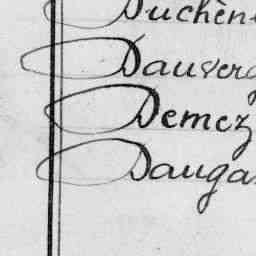 Duchên
Dauverg
Demez
Dauga